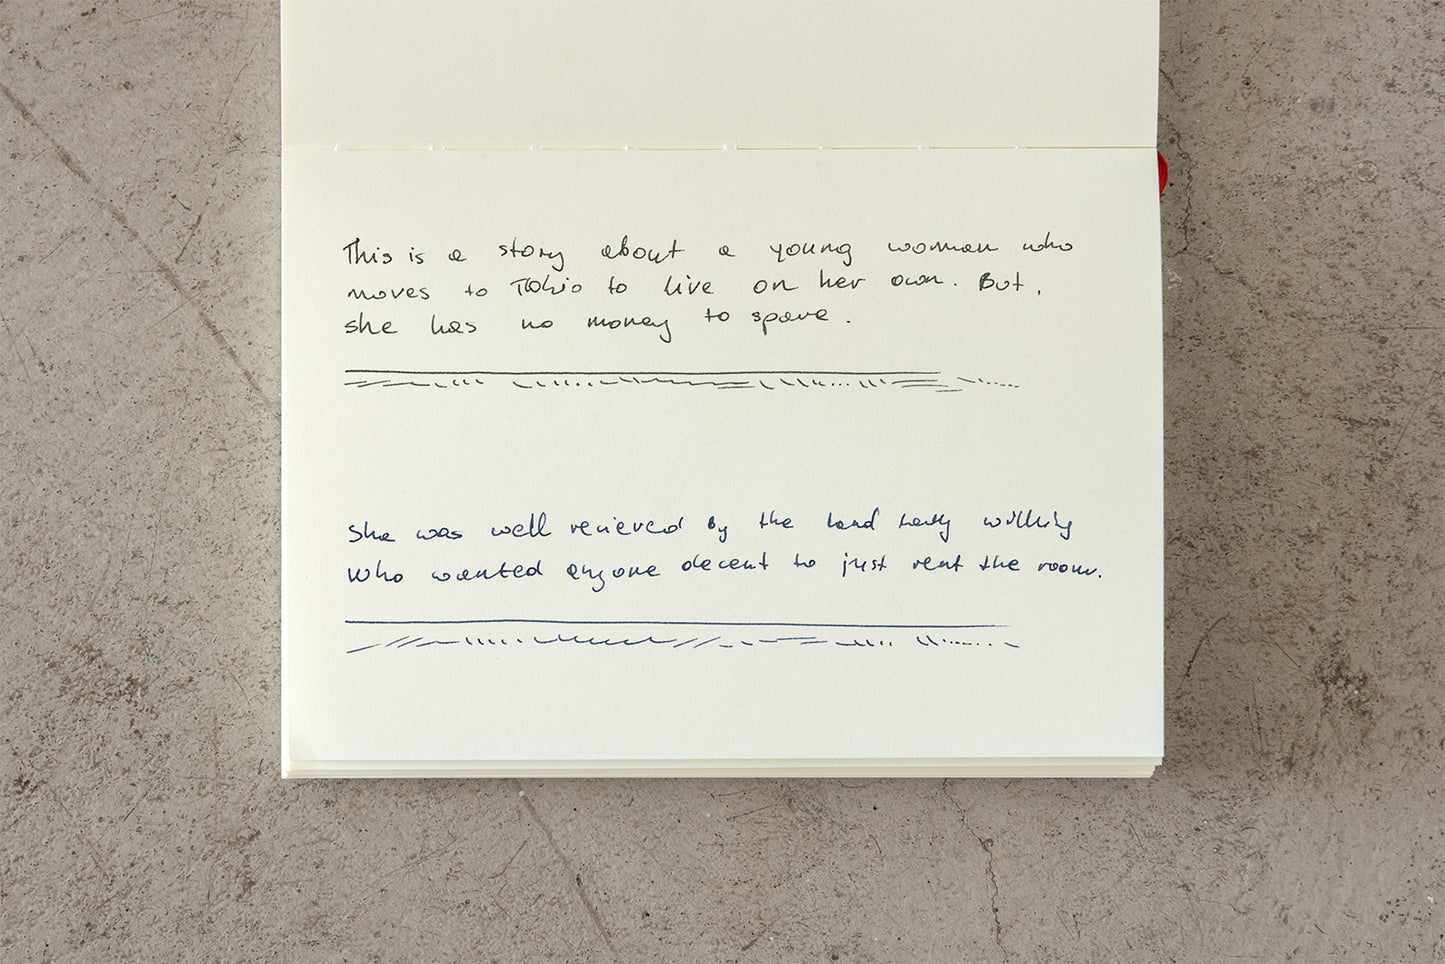 This is a story about a young woman who
moves to Tokio to live on her own. But,
she has no money to spare.
She was well recieved by the land willing
who wanted anyone decent to just rent the room.